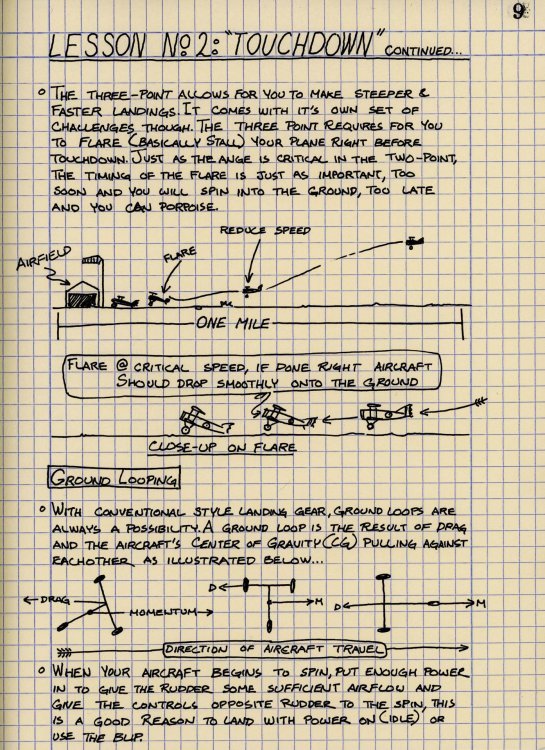 9
LESSON No 2: "TOUCHDOWN" CONTINUED...
THE THREE-POINT ALLOWS FOR YOU TO MAKE STEEPER &
FASTER LANDINGS. IT COMES WITH IT'S OWN SET OF
CHALLENGES THOUGH. THE THREE POINT REQUIRES FOR YOU
TO FLARE (BASICALLY STALL) YOUR PLANE RIGHT BEFORE
TOUCHDOWN. JUST AS THE ANGE IS CRITICAL IN THE TWO-POINT,
THE TIMING OF THE FLARE IS JUST AS IMPORTANT, TOO
SOON AND YOU WILL SPIN INTO THE GROUND, TOO LATE
AND YOU CAN PORPOISE.
REDUCE SPEED
FLARE
AIRFIELD
ONE MILE
FLARE @ CRITICAL SPEED, IF DONE RIGHT AIRCRAFT
SHOULD DROP SMOOTHLY ONTO THE GROUND
CLOSE-UP ON FLARE
GROUND LOOPING
WITH CONVENTIONAL STYLE LANDING GEAR, GROUND LOOPS ARE
ALWAYS A POSSIBILITY. A GROUND LOOP IS THE RESULT OF DRAG
AND THE AIRCRAFT'S CENTER OF GRAVITY (CG) PULLING AGAINST
EACHOTHER AS ILLUSTRATED BELOW...
DRAG
MOMENTUM
D
M
D
M
DIRECTION OF AIRCRAFT TRAVEL
WHEN YOUR AIRCRAFT BEGINS TO SPIN, PUT ENOUGH POWER
IN TO GIVE THE RUDDER SOME SUFFICIENT AIRFLOW AND
GIVE THE CONTROLS OPPOSITE RUDDER TO THE SPIN, THIS
IS A GOOD REASON TO LAND WITH POWER ON (IDLE) OR
USE THE BLIP.